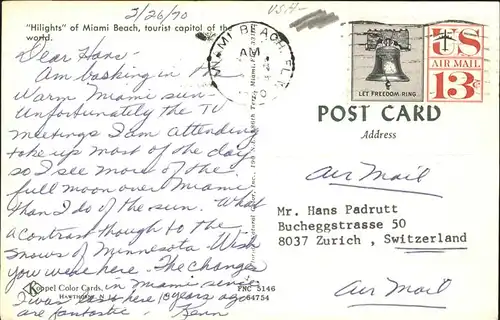 3/26/70
U.S.A-
"Hilights" of Miami Beach, tourist capital of the
world.
MIAMI BEACH, FLA.
AM
LET FREEDOM RING
US
AIR MAIL
13¢
POST CARD
Address
Dear Hans -
Am basking in the
warm Miami sun.
Unfortunately the TV
meetings I am attending
take up most of the day
so I see more of the
full moon over Miami
than I do of the sun. What
a contrast though to the
snows of Minnesota. Wish
you were here. The changes
in Miami since
I was last here 10 years ago
are fantastic.
Air Mail
Mr. Hans Padrutt
Bucheggstrasse 50
8037 Zurich , Switzerland
Air Mail
Koppel Color Cards
Hawthorne, N.J.
FNC 5146
64754